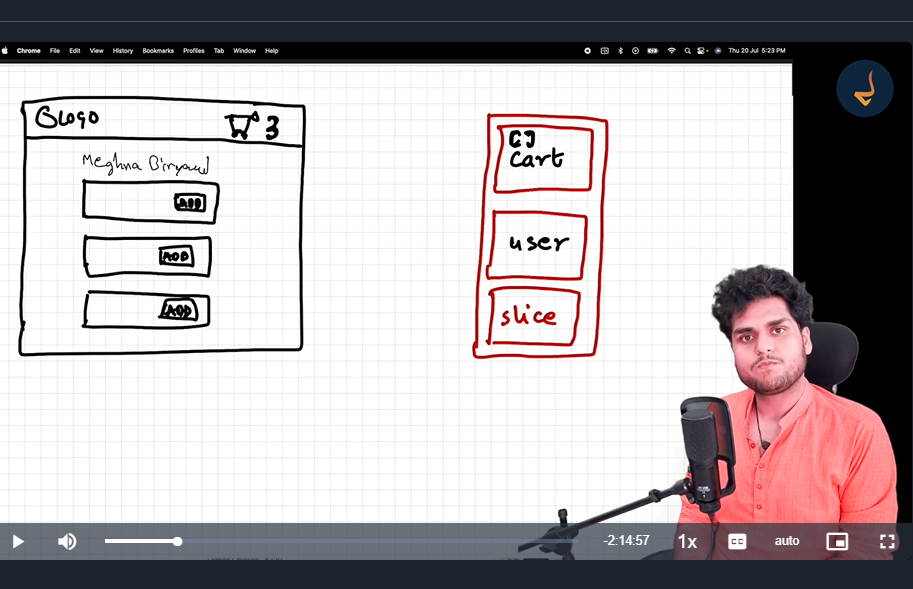 Chrome File Edit View History Bookmarks Profiles Tab Window Help
Thu 20 Jul 5:23 PM
LOGO
3
Meghna Biryani
ADD
ADD
ADD
[]
Cart
user
slice
-2:14:57
1x
CC
auto